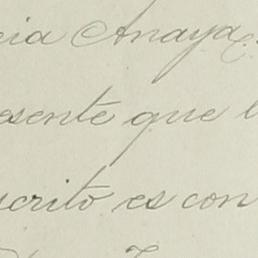 cia Anaya
esente que l
scrito es con